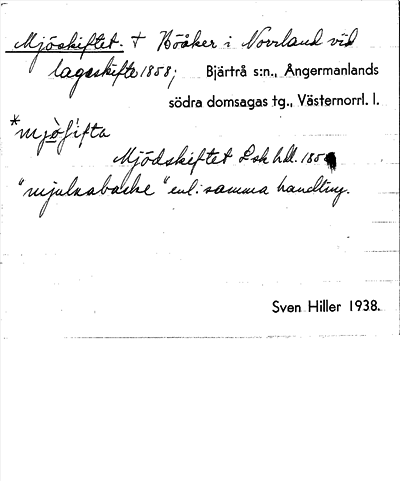 Mjöskiftet. † Böåker i Norrland vid
lagaskifte 1858; Bjärtrå s:n., Ångermanlands
södra domsagas tg., Västernorrl. l.
Mjödskiftet Lsk hdl.
"mjulnabacke" enl. samma handling.
Sven Hiller 1938.